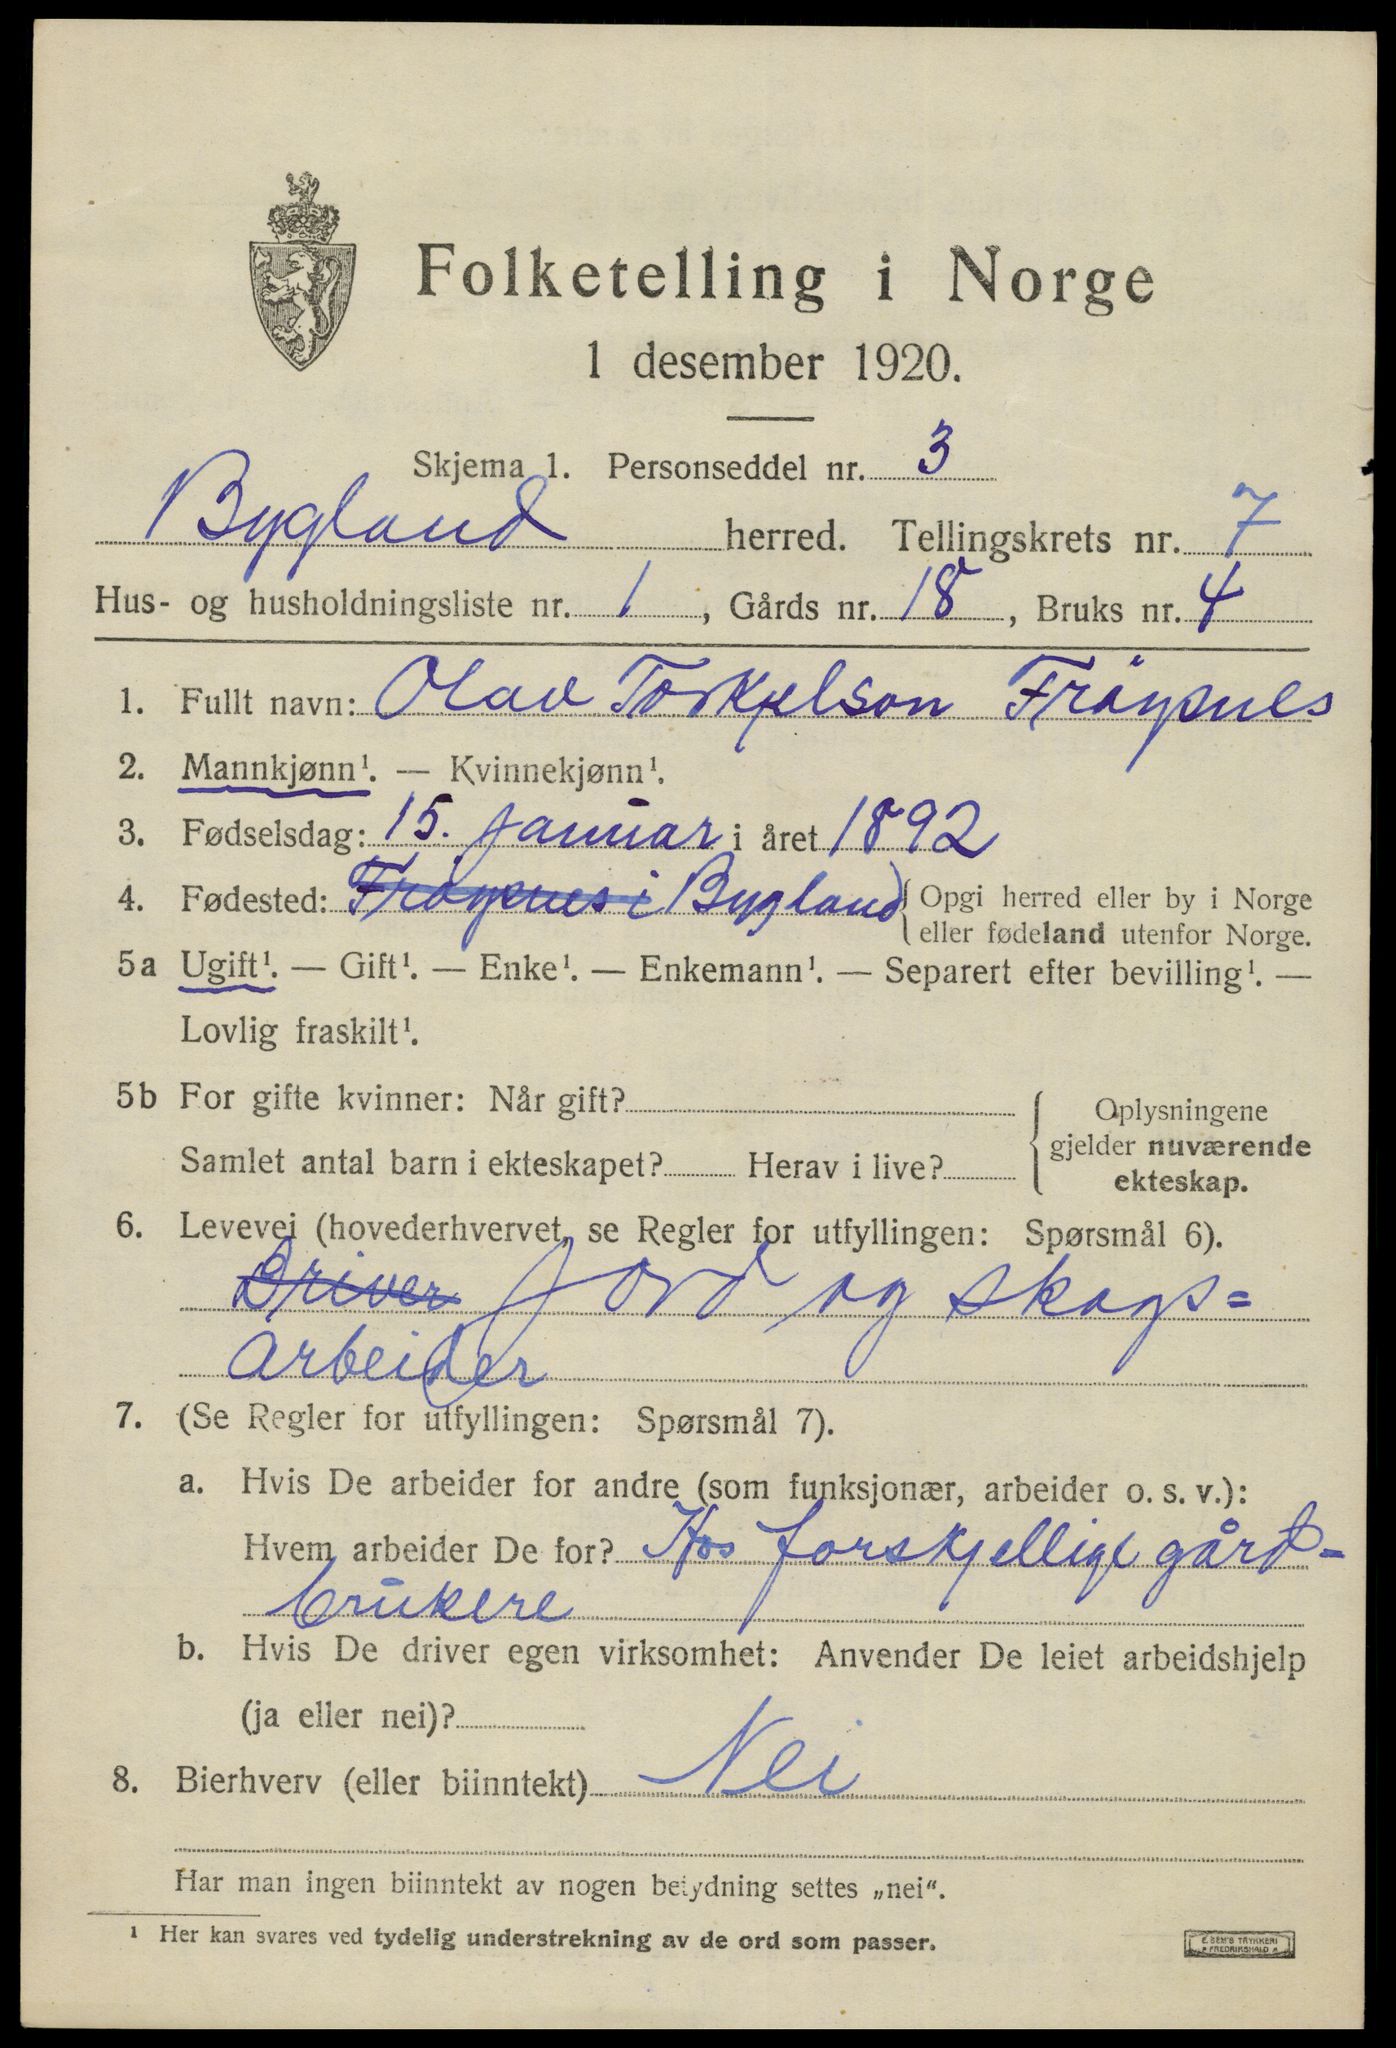 Folketelling i Norge
1 desember 1920.
Skjema 1. Personseddel nr. 3
Bygland herred. Tellingskrets nr. 7
Hus- og husholdningsliste nr. 1, Gårds nr. 18, Bruks nr. 4
1. Fullt navn: Olav Torkjelson Frøysnes
2. Mannkjønn¹. — Kvinnekjønn¹.
3. Fødselsdag: 15. januar i året 1892
4. Fødested: Frøysnes i Bygland { Opgi herred eller by i Norge
eller fødeland utenfor Norge.
5a Ugift¹. — Gift¹. — Enke¹. — Enkemann¹. — Separert efter bevilling¹. —
Lovlig fraskilt¹.
5b For gifte kvinner: Når gift?
Samlet antal barn i ekteskapet? Herav i live?
Oplysningene
gjelder nuværende
ekteskap.
6. Levevei (hovederhvervet, se Regler for utfyllingen: Spørsmål 6).
Driver Jord og skogs=
arbeider
7. (Se Regler for utfyllingen: Spørsmål 7).
a. Hvis De arbeider for andre (som funksjonær, arbeider o. s. v.):
Hvem arbeider De for? Hos forskjellige gård-
brukere
b. Hvis De driver egen virksomhet: Anvender De leiet arbeidshjelp
(ja eller nei)?
8. Bierhverv (eller biinntekt) Nei
Har man ingen biinntekt av nogen betydning settes „nei“.
¹ Her kan svares ved tydelig understrekning av de ord som passer.
E. SEM'S TRYKKERI
FREDRIKSHALD